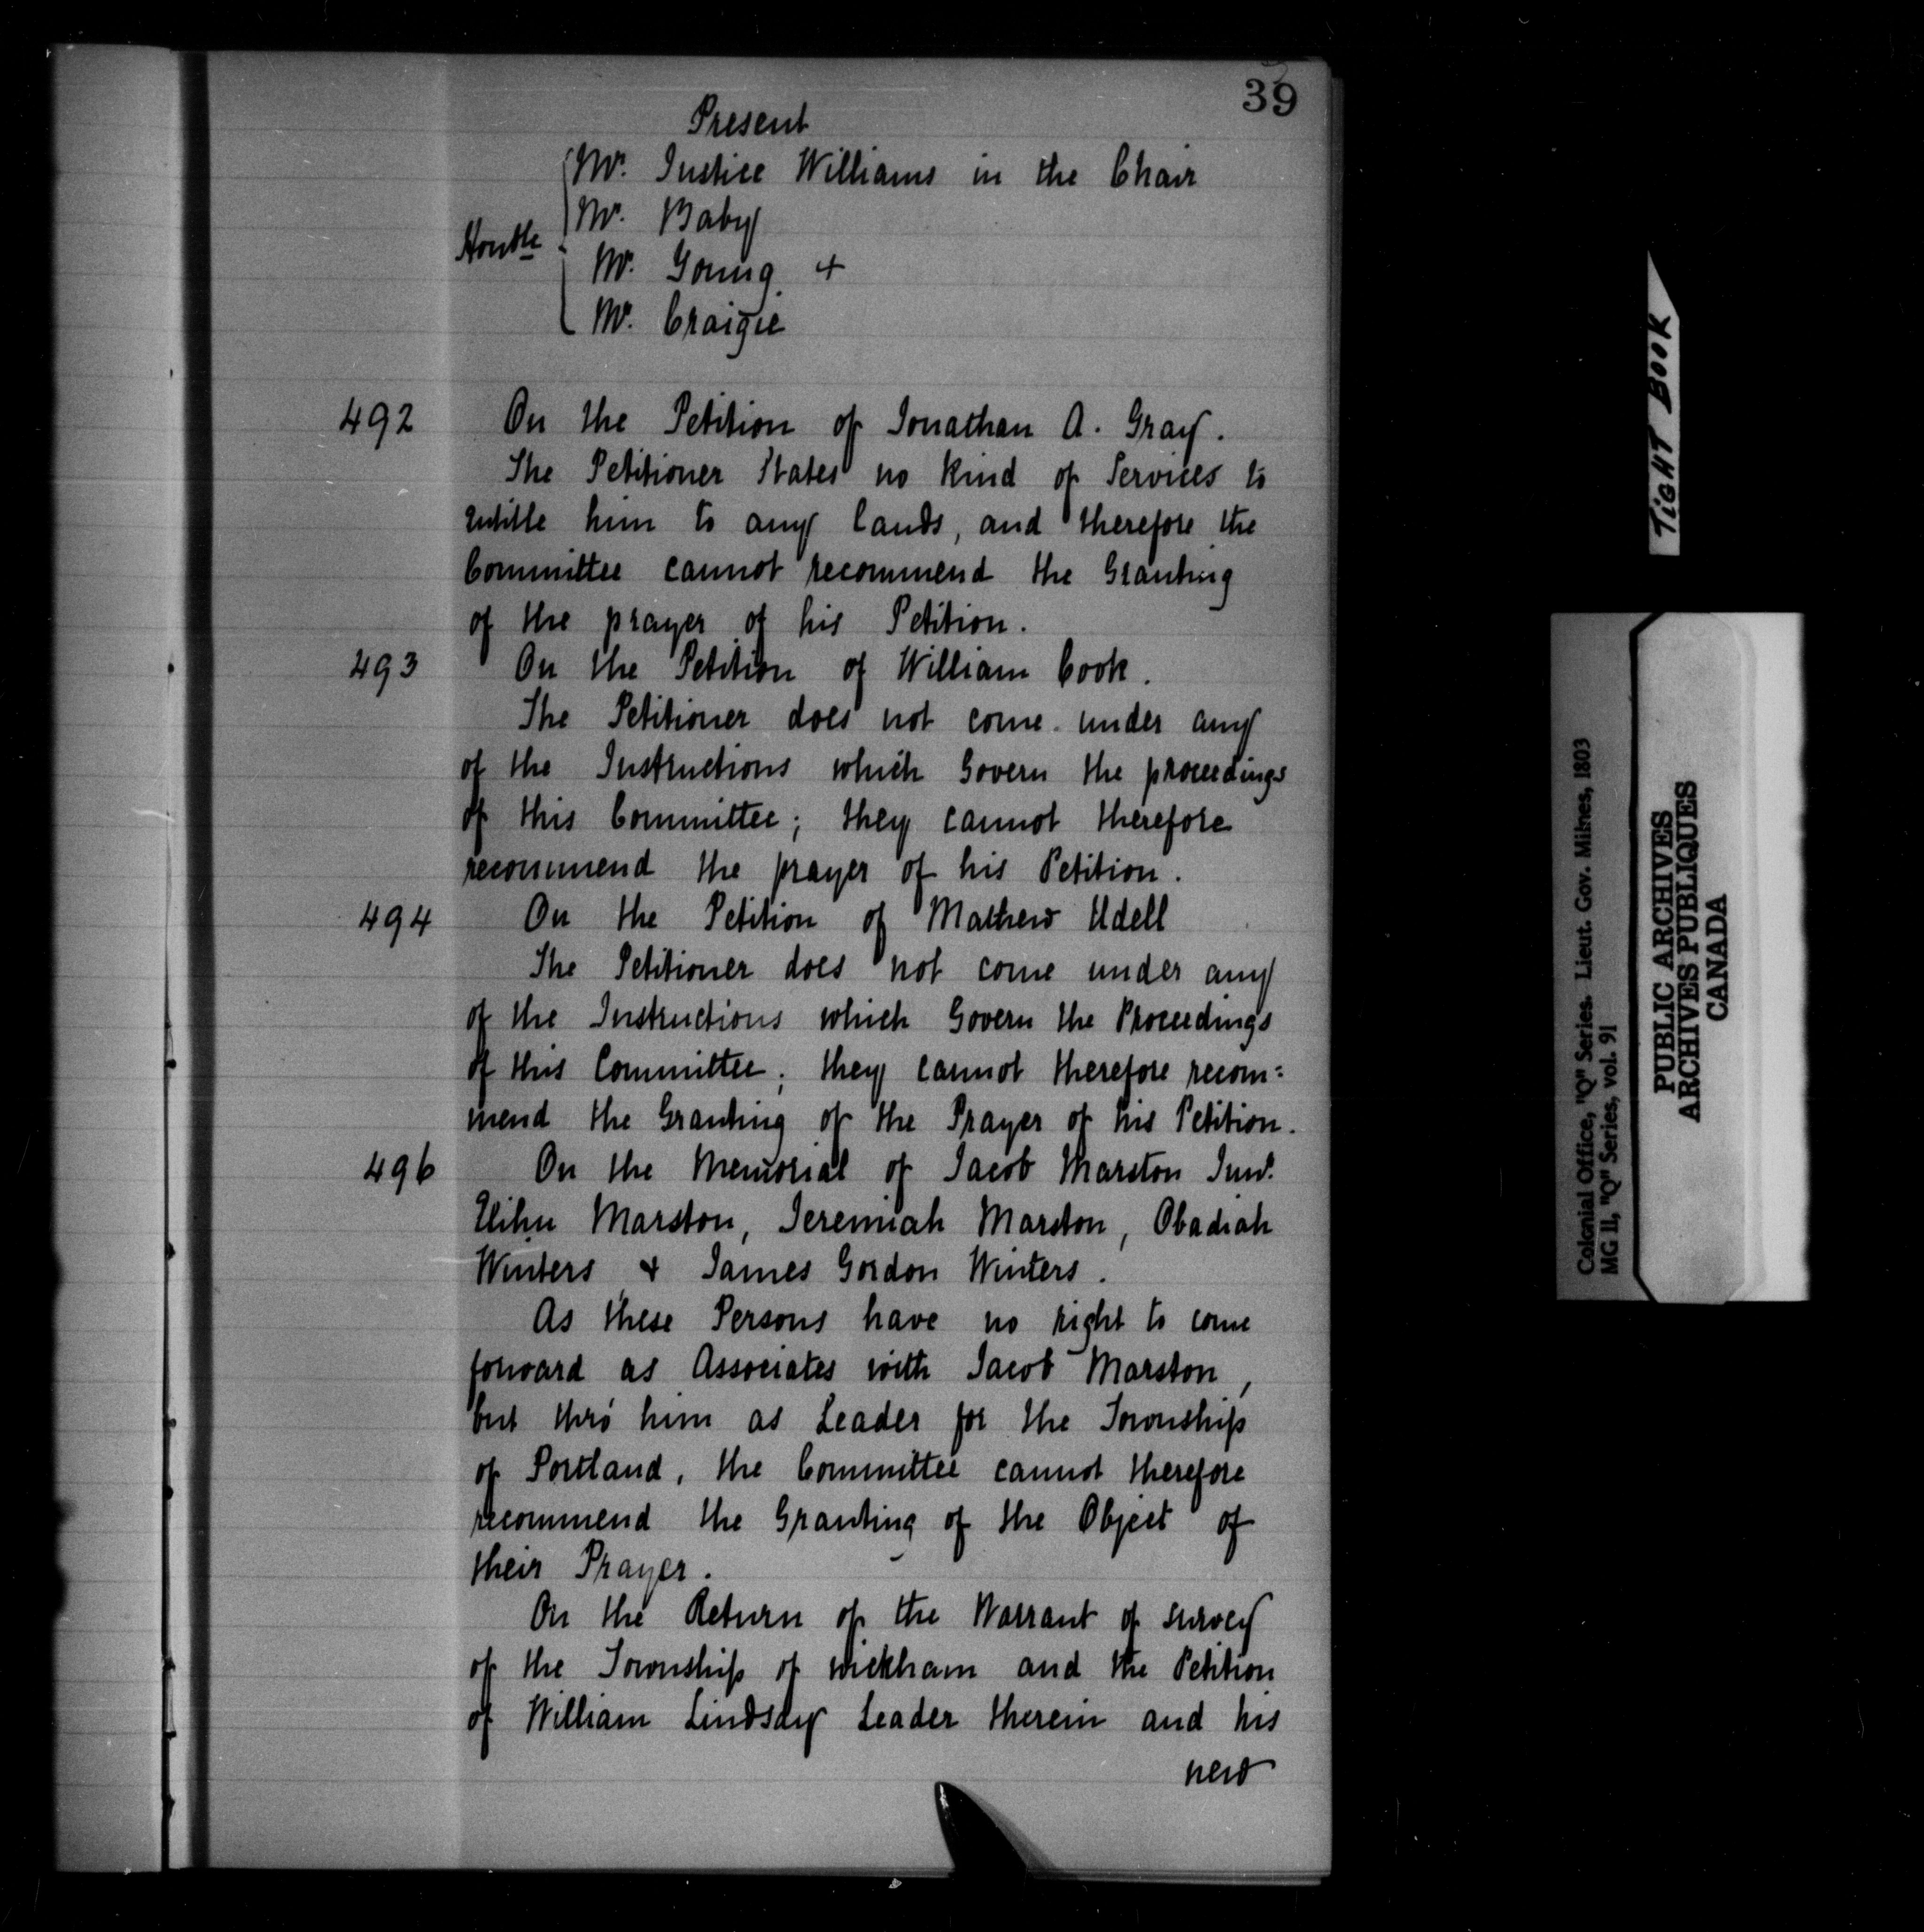 39
Present
Mr. Justice Williams in the Chair
Mr. Baby
Honble
Mr. Young &
Mr. Craigie
492 On the Petition of Jonathan A. Gray.
The Petitioner States no kind of Services to
entitle him to any lands, and therefore the
Committee cannot recommend the Granting
of the prayer of his Petition.
493 On the Petition of William Cook.
The Petitioner does not come under any
of the Instructions which Govern the proceedings
of this Committee; they cannot therefore
recommend the prayer of his Petition.
494 On the Petition of Mathew Udell
The Petitioner does not come under any
of the Instructions which Govern the Proceedings
of this Committee; they cannot therefore recom=
mend the Granting of the Prayer of his Petition.
496 On the Memorial of Jacob Marston Junr.
Elihu Marston, Jeremiah Marston, Obadiah
Winters & James Gordon Winters.
As these Persons have no right to come
forward as Associates with Jacob Marston,
but thro' him as Leader for the Township
of Portland, the Committee cannot therefore
recommend the Granting of the Object of
their Prayer.
On the Return of the Warrant of survey
of the Township of Wickham and the Petition
of William Lindsay Leader therein and his
new
TIGHT BOOK
Colonial Office, "Q" Series. Lieut. Gov. Milnes, 1803
MG 11, "Q" Series, vol. 91
PUBLIC ARCHIVES
ARCHIVES PUBLIQUES
CANADA